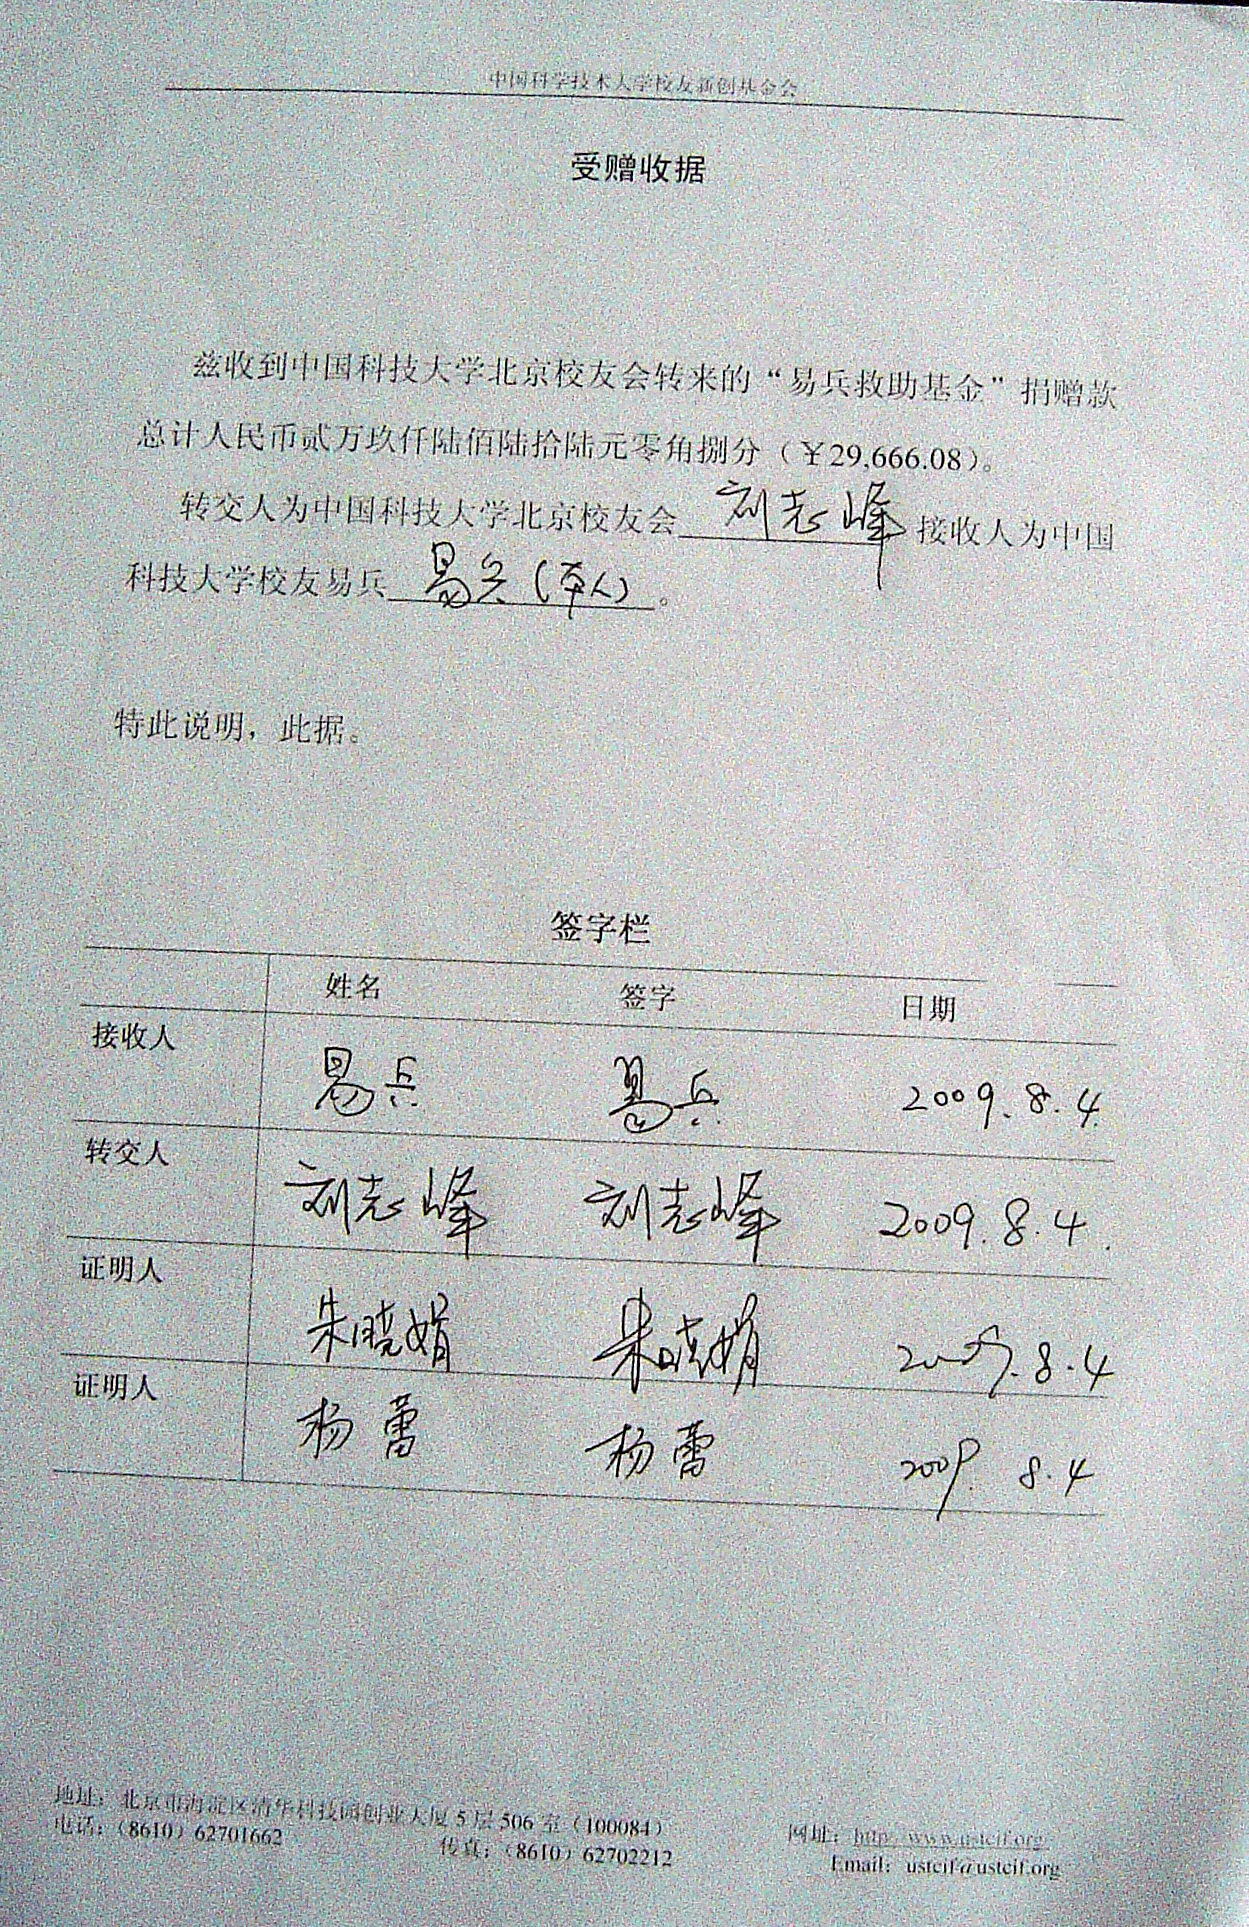 中国科学技术大学校友新创基金会
受赠收据
兹收到中国科技大学北京校友会转来的“易兵救助基金”捐赠款
总计人民币贰万玖仟陆佰陆拾陆元零角捌分（￥29,666.08）。
转交人为中国科技大学北京校友会 刘志峰 接收人为中国
科技大学校友易兵 易兵（本人）。
特此说明，此据。
签字栏
姓名 签字 日期
接收人 易兵 易兵 2009.8.4.
转交人 刘志峰 刘志峰 2009.8.4.
证明人 朱晓娟 朱晓娟 2009.8.4
证明人 杨蕾 杨蕾 2009. 8.4
地址：北京市海淀区清华科技园创业大厦 5 层 506 室（100084）
电话：（8610）62701662 传真：（8610）62702212
网址：http://www.ustcif.org/
Email：ustcif@ustcif.org